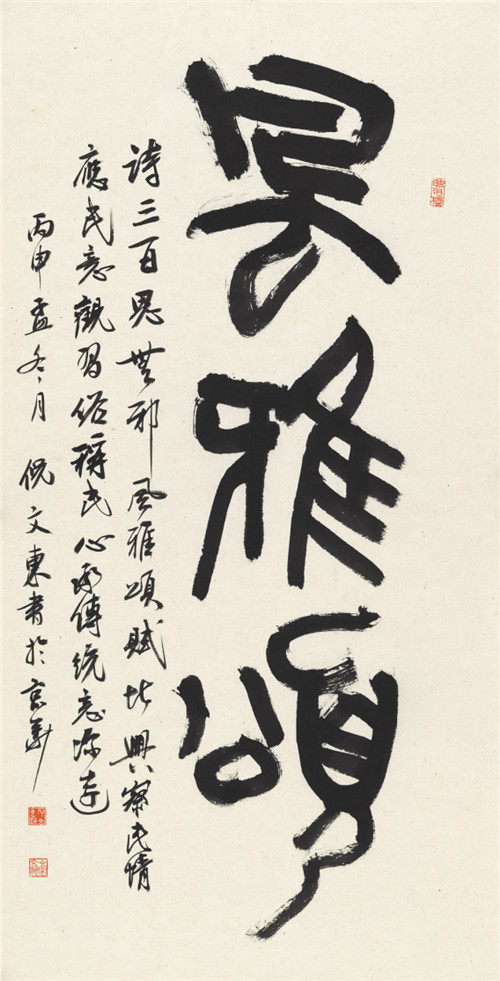 風雅頌
詩三百思無邪風雅頌賦比興察民情
應民意觀習俗辨民心承傳統意深遠
丙申孟冬月倪文東書於京華